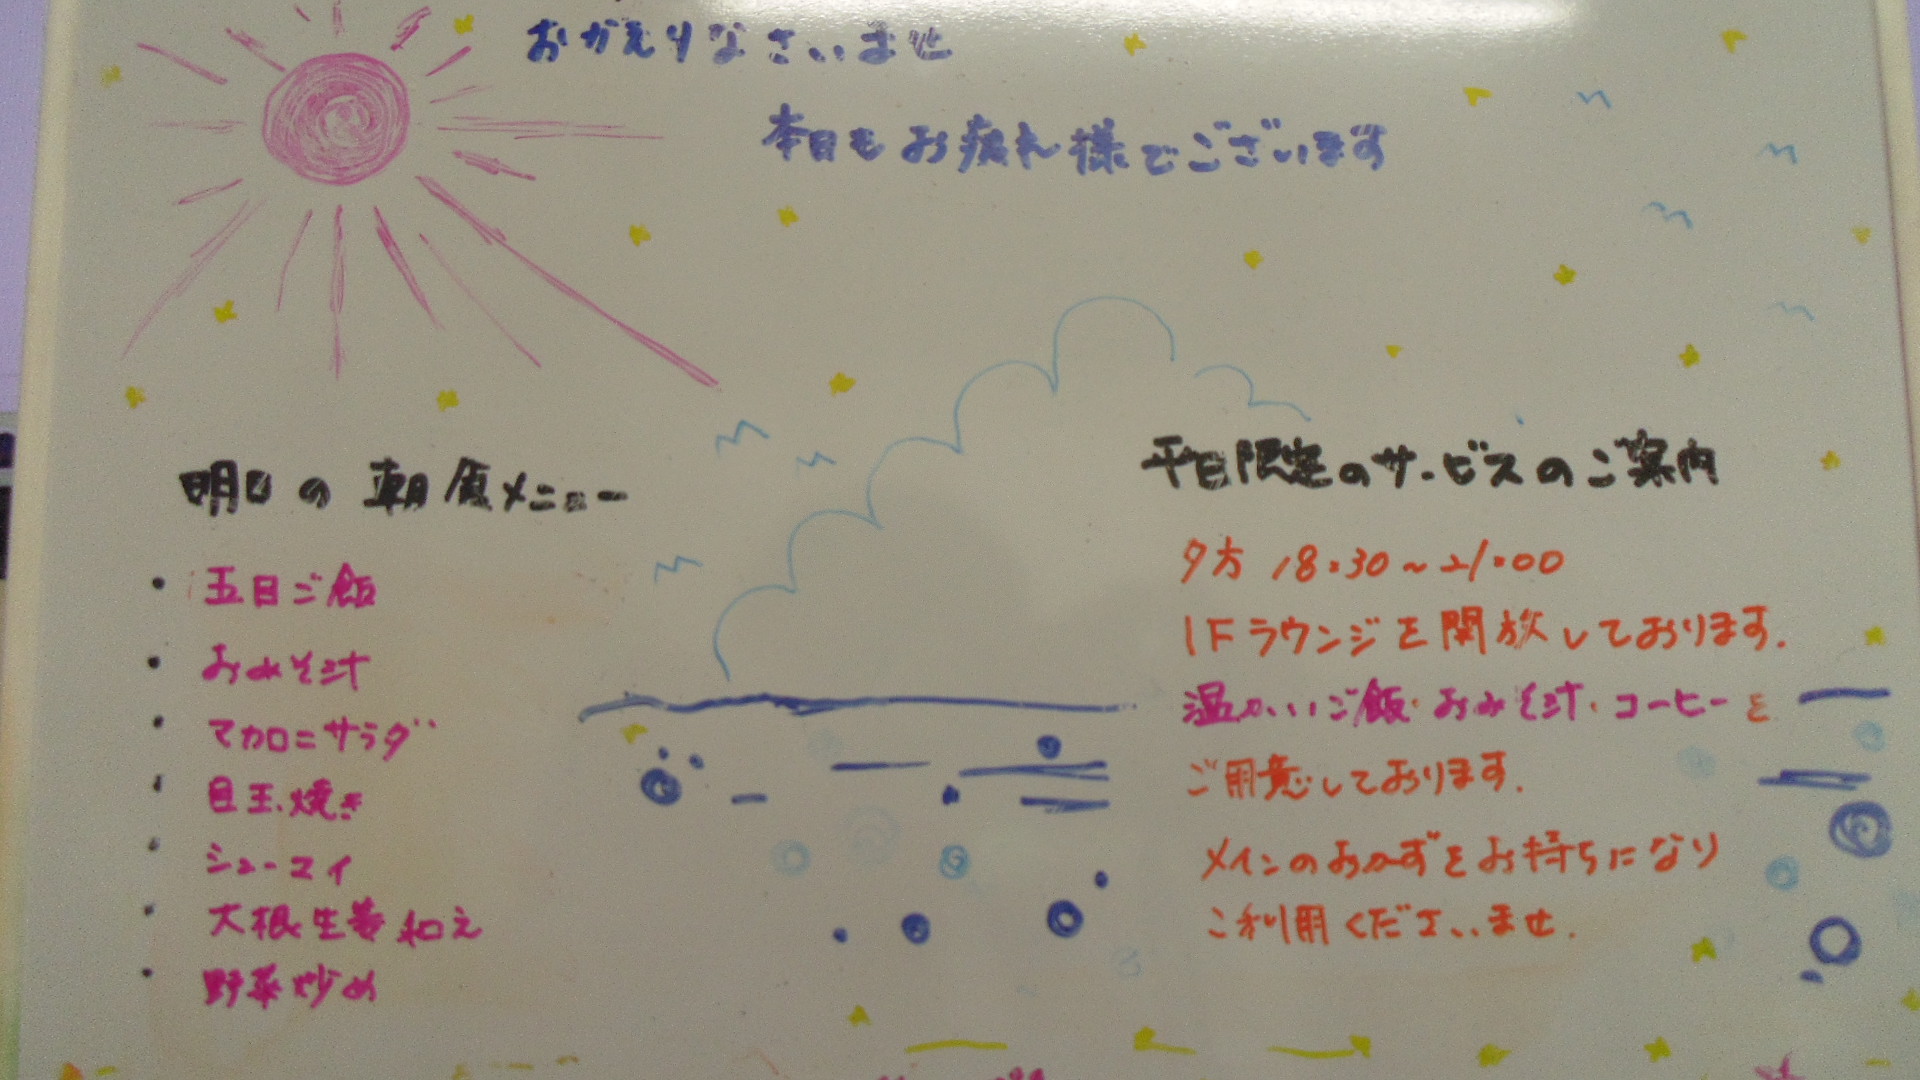 おかえりなさいませ
本日もお疲れ様でございます
明日の朝食メニュー
・五目ご飯
・おみそ汁
・マカロニサラダ
・目玉焼き
・シューマイ
・大根生姜和え
・野菜炒め
平日限定のサービスのご案内
夕方 18:30~21:00
1Fラウンジを開放しております.
温かいご飯・おみそ汁・コーヒーを
ご用意しております.
メインのおかずをお持ちになり
ご利用くださいませ.